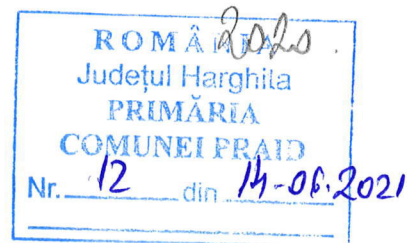 2020
ROMÂNIA
Județul Harghita
PRIMĂRIA
COMUNEI PRAID
Nr. 12 din 14-06.2021